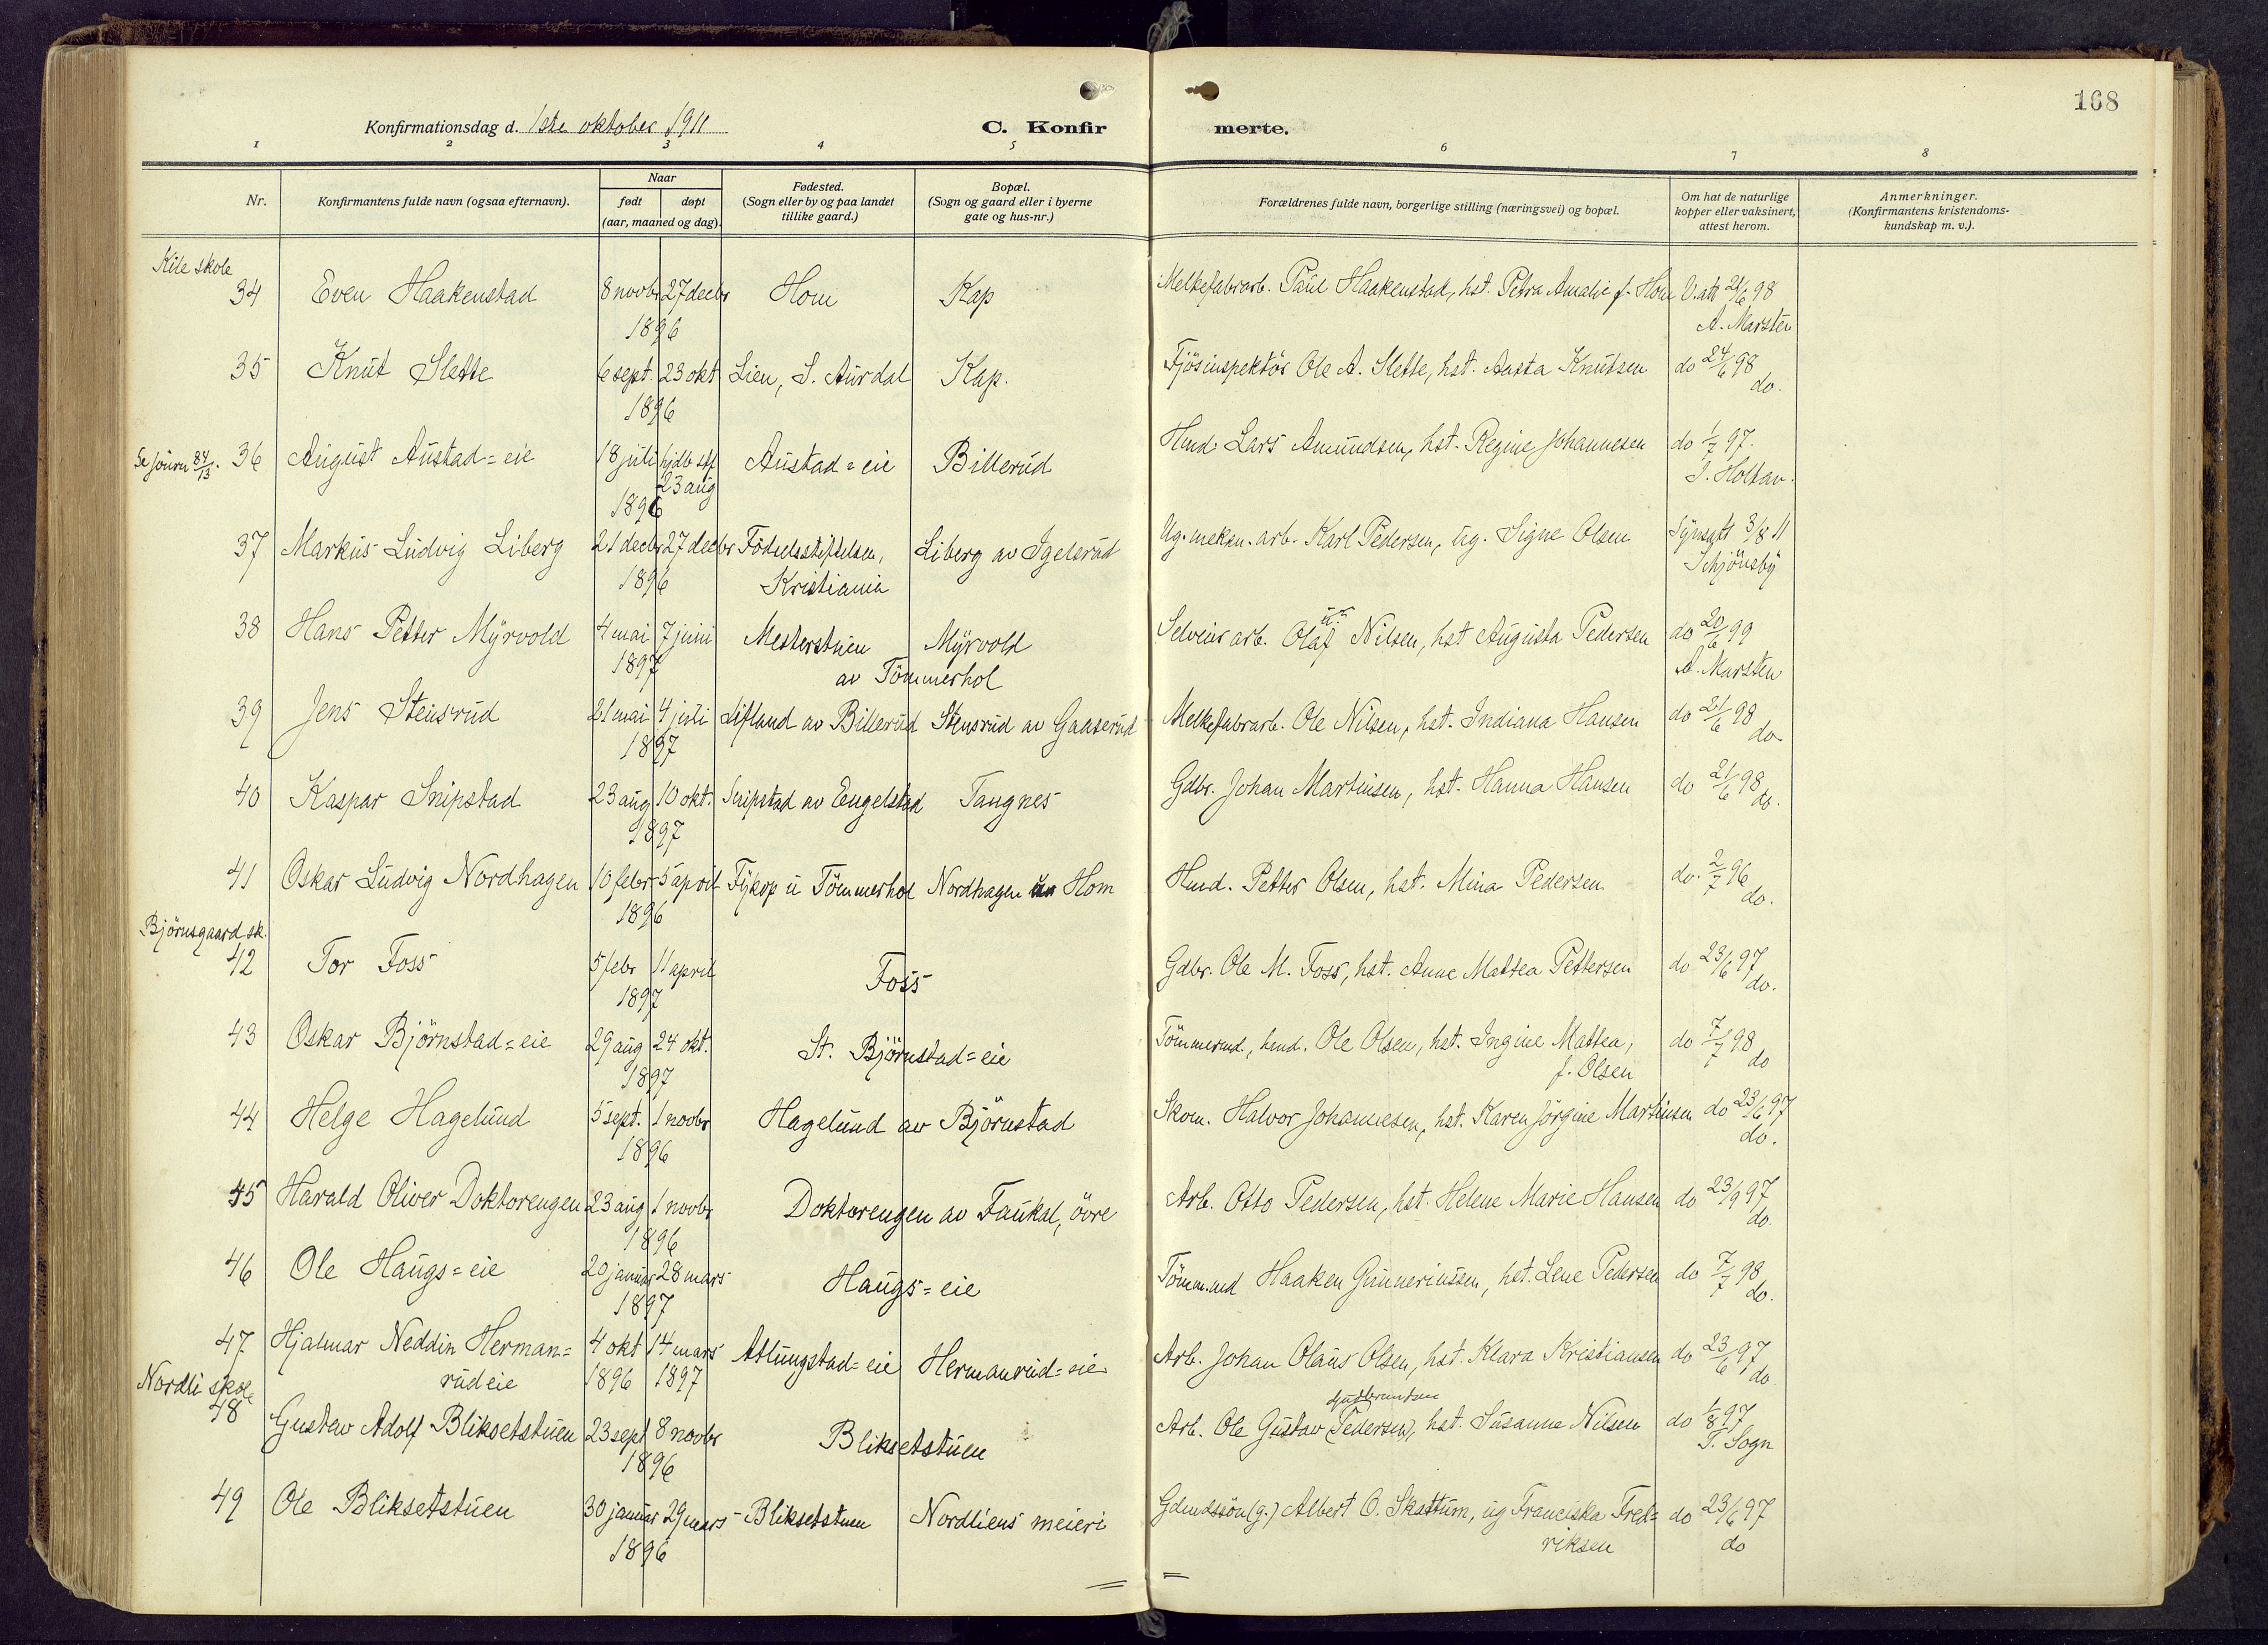 168
Konfirmationsdag d. 1ste oktober 1911 C. Konfir merte.
1 2 3 4 5 6 7 8
Nr. Konfirmantens fulde navn (ogsaa efternavn). Naar født døpt (aar, maaned og dag). Fødested. (Sogn eller by og paa landet tillike gaard.) Bopæl. (Sogn og gaard eller i byerne gate og hus-nr.) Forældrenes fulde navn, borgerlige stilling (næringsvei) og bopæl. Om hat de naturlige kopper eller vaksinert, attest herom. Anmerkninger. (Konfirmantens kristendoms-kundskap m. v.).
Kile skole
34 Even Haakenstad 8 novbr 27 decbr Hom Kap Melkefabrarb. Paul Haakenstad, hst. Petra Amalie f. Hom V. att 21/6 98
1896 A. Marsten
35 Knut Slette 6 sept. 23 okt Lien, S. Aurdal Kap. Fjösinspektör Ole A. Slette, hst. Aasta Knutsen do 24/6 98
1896 do.
Se journ 84/13. 36 August Austad=eie 18 juli hjdb stf 23 aug Austad=eie Billerud Hmd. Lars Amundsen, hst. Regine Johannesen do 1/7 97.
1896 J. Holtan.
37 Markus Ludvig Liberg 21 decbr 27 decbr Födselsstiftelsen, Liberg av Igelsrud Ug. mekan. arb. Karl Pedersen, ug. Signe Olsen Synsatt 3/8 11
1896 Kristiania Schjönsby
38 Hans Petter Myrvold 4 mai 7 juni Mesterstuen Myrvold Selveierarb. Olaf Nilsen, hst Augusta Pedersen do 20/6 99
1897 av Tömmerhol A. Marsten
39 Jens Stensrud 21 mai 4 juli Lifland av Billerud Stensrud av Gaaserud Melkefabrarb. Ole Nilsen, hst. Indiana Hansen do 21/6 98
1897 do
40 Kaspar Snipstad 23 aug 10 okt. Snipstad av Engelstad Tangnes Gdbr. Johan Martinsen, hst. Hanna Hansen do 21/6 98
1897 do.
41 Oskar Ludvig Nordhagen 10 febr 5 april Fykop u Tömmerhol Nordhagen un Hom Hmd. Petter Olsen, hst. Mina Pedersen do. 2/7 96
1896 do.
Björnsgaard sk.
42 Tor Foss 5 febr 11 april Foss Gdbr. Ole M. Foss, hst. Anne Mattea Pettersen do 23/6 97
1897 do.
43 Oskar Björnstad=eie 29 aug 24 okt. St. Björnstad=eie Tömmermd., hmd. Ole Olsen, hst. Ingine Mattea, do 7/7 98
1897 f. Olsen do
44 Helge Hagelund 5 sept. 1 novbr Hagelund av Björnstad Skom. Halvor Johannesen, hst. Karen Jörgine Martinsen do 23/6 97
1896 do.
45 Harald Oliver Doktorengen 23 aug 1 novbr Doktorengen av Faukal, övre Arb. Otto Pedersen, hst. Helene Marie Hansen do 23/9 97
1896 do.
46 Ole Haugs=eie 20 januar 28 mars Haugs=eie Tömm.md Haaken Gunneriussen, hst. Lene Pedersen do 7/7 98
1897 do.
47 Hjalmar Neddin Herman= 4 okt 14 mars Atlungstad=eie Hermanrud=eie Arb. Johan Olaus Olsen, hst. Klara Kristiansen do 23/6 97
rud eie 1896 1897 do
Nordli skole
Gudbrandsen
48 Gustav Adolf Bliksetstuen 23 sept 8 novbr Bliksetstuen Arb. Ole Gustav (Pedersen), hst. Susanne Nilsen do 1/8 97
1896 T. Sogn
49 Ole Bliksetstuen 30 januar 29 mars Bliksetstuen Nordliens meieri Gdmdssön (g.) Albert O. Skattum, ug Franciska Fred= do 23/6 97
1896 riksen do